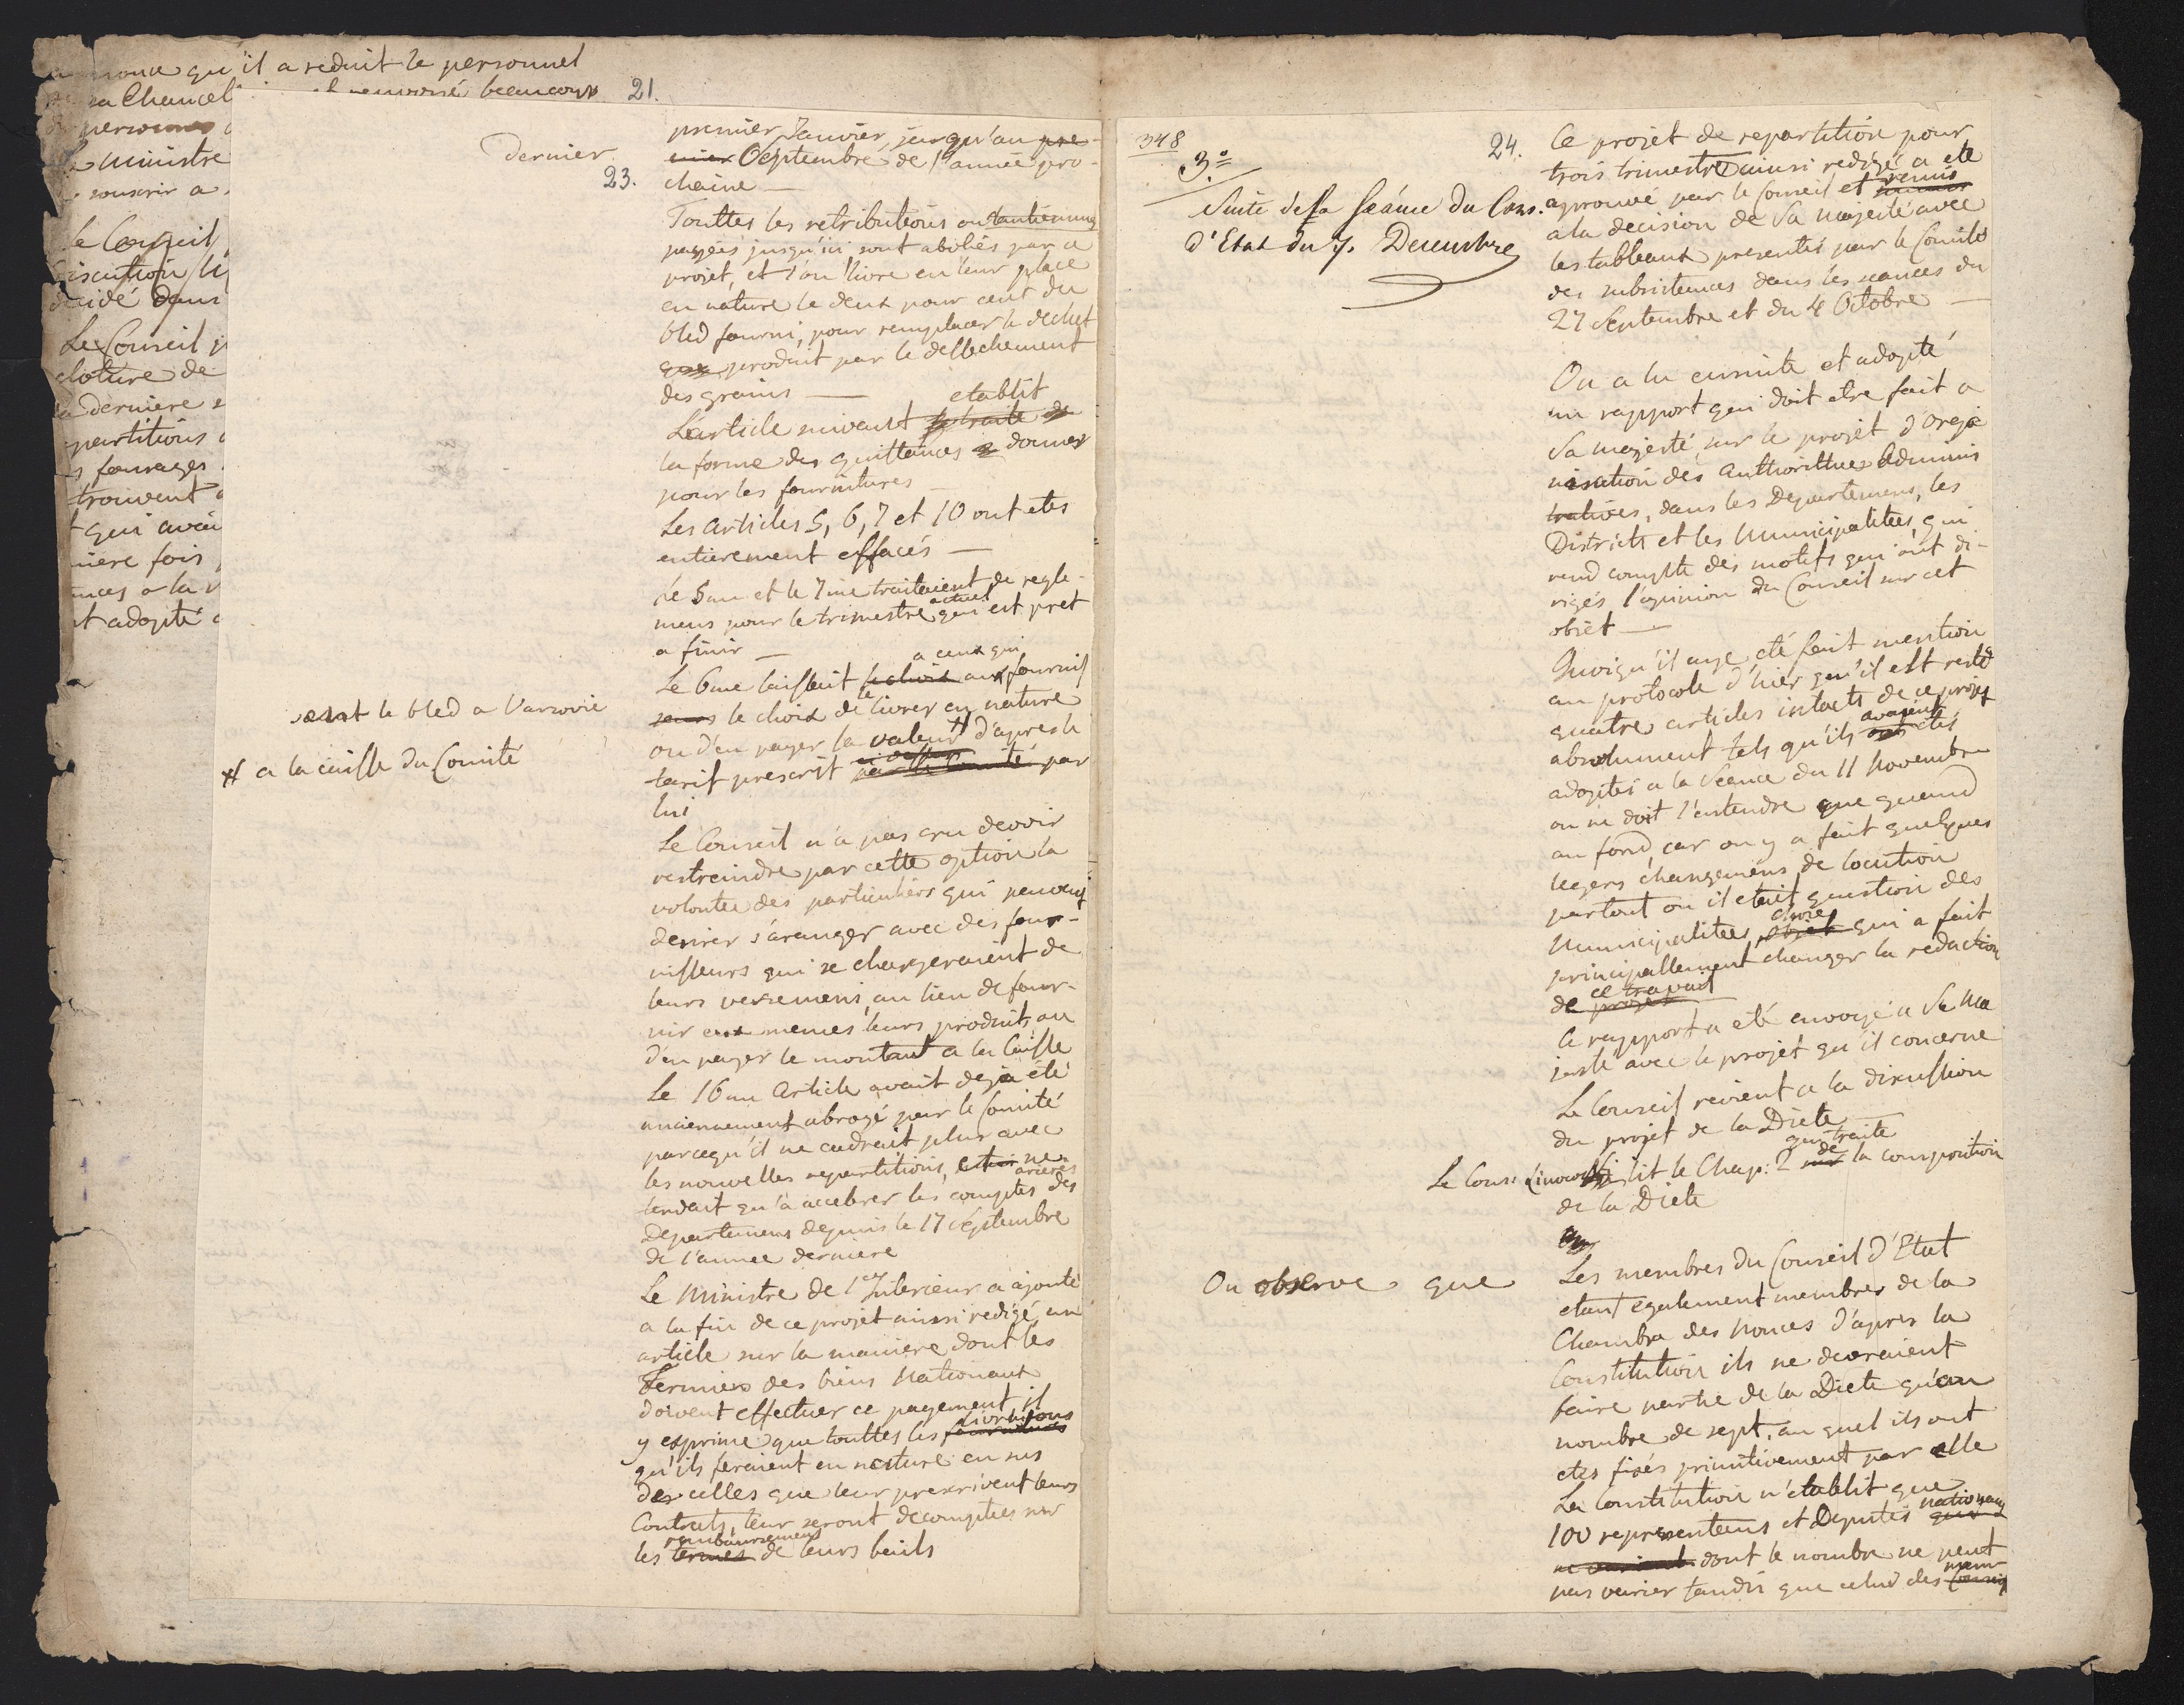 qu'il a reduit le personnel
Chancel
beaucoup 21.
personnes
ministre
souscrir a
le Conseil
discussion
decidé dans
Le Conseil
cloture de
la derniere
partitions
fourages
trouvent
qui
fois
a la
adopté
Dernier
sent le bled a Varsovie
# a la caisse du Comité
23.
premier Janvier, jusqu'au pre-
mier Septembre de l'année pro-
chaine —
Touttes les retributions ou tantiemmes
payées jusqu'ici sont abolies par ce
projet, et l'on livre en leur place
en nature le deux pour cent du
bled fourni, pour remplacer le dechet
produit par le dessechement
des grains —
etablit
L'article suivant traite de
la forme des quittances a donner
pour les fournitures
Les articles 5, 6, 7 et 10 ont etes
entierement effacés —
Le 5me et le 7ime traitaient de regle-
actuel
mens pour le trimestre qui est pret
a finir —
a ceux qui
Le 6me laissait le choix aux fournis
le
seurs le choix de livrer en nature
ou d'en payer la valeur # d'apres le
ci dessus
tarif prescrit par le Comité par
lui
Le Conseil n'a pas cru devoir
restreindre par cette option la
volontée des particuliers qui peuvent
desirer s'aranger avec des four-
nisseurs qui se chargeraient de
leurs versemens, au lieu de four-
nir eux memes leurs produits, ou
d'en payer le montant a la Caisse
Le 16me Article avait deja été
anciennement abrogé par le Comité
parcequ'il ne cadrait plus avec
les nouvelles repartitions, ne
arierés
tendait qu'à accelerer les comptes des
Departemens depuis le 17 Septembre
de l'année derniere
Le Ministre de l'Interieur a ajouté
a la fin de ce projet ainsi redigé, un
article sur la maniere dont les
Fermiers des biens Nationaux
doivent effectuer ce payement, il
livraisons
y exprime que touttes les fournitures
qu'ils feraient en nature en sus
de celles que leur prescrivent leurs
Contrats, leur seront decomptées sur
remboursement
les termes de leurs bails
348
3.o
Suite de la Seánce du Cons.
d'Etat du 7. Decembre
24.
Ce projet de repartition pour
trois trimestres ainsi redigé a ete
remis
aprouvé par le Conseil et
a la decision de Sa Majesté avec
les tableaux presentés par le Comité
des subsistences dans les seances du
27 Septembre et du 4 Octobre —
On a lu ensuite et adopté
un rapport qui doit etre fait a
Sa Majesté, sur le projet d'orga
nisation des Authorittées Adminis
tratives, dans les Departemens, les
Districts et les Municipalitées, qui
rend compte des motifs qui ont di-
rigés l'opinion du Conseil sur cet
objet —
Quoiqu'il aye eté fait mention
au protocole d'hier qu'il est resté
quatre articles intacts de ce projet
avaient
absolument tels qu'ils ont etés
adoptés a la Seance du 11 Novembre
on ne doit l'entendre que quand
au fond, car on y a fait quelques
legers changemens de locution
partout ou il etait question des
chose
Municipalitées, objet qui a fait
principallement changer la redaction
ce travail
de projet
Ce rapport a eté envoyé a Sa Ma
jesté avec le projet qu'il concerne
Le Conseil revient a la discussion
du projet de la Diete
qui traite
de
Le Cons: Linowski lit le Chap: 2 sur la composition
de la Diete
On observe que
Les membres du Conseil d'Etat
etant egalement membres de la
Chambre des Nonces d'apres la
Constitution ils ne devraient
faire partie de la Diete qu'au
nombre de sept, au quel ils ont
etes fixés primitivement par elle
La Constitution n'etablit que
nationaux
100 representans et Deputés qui
ne varient dont le nombre ne peut
mem-
pas varier tandis que celui des